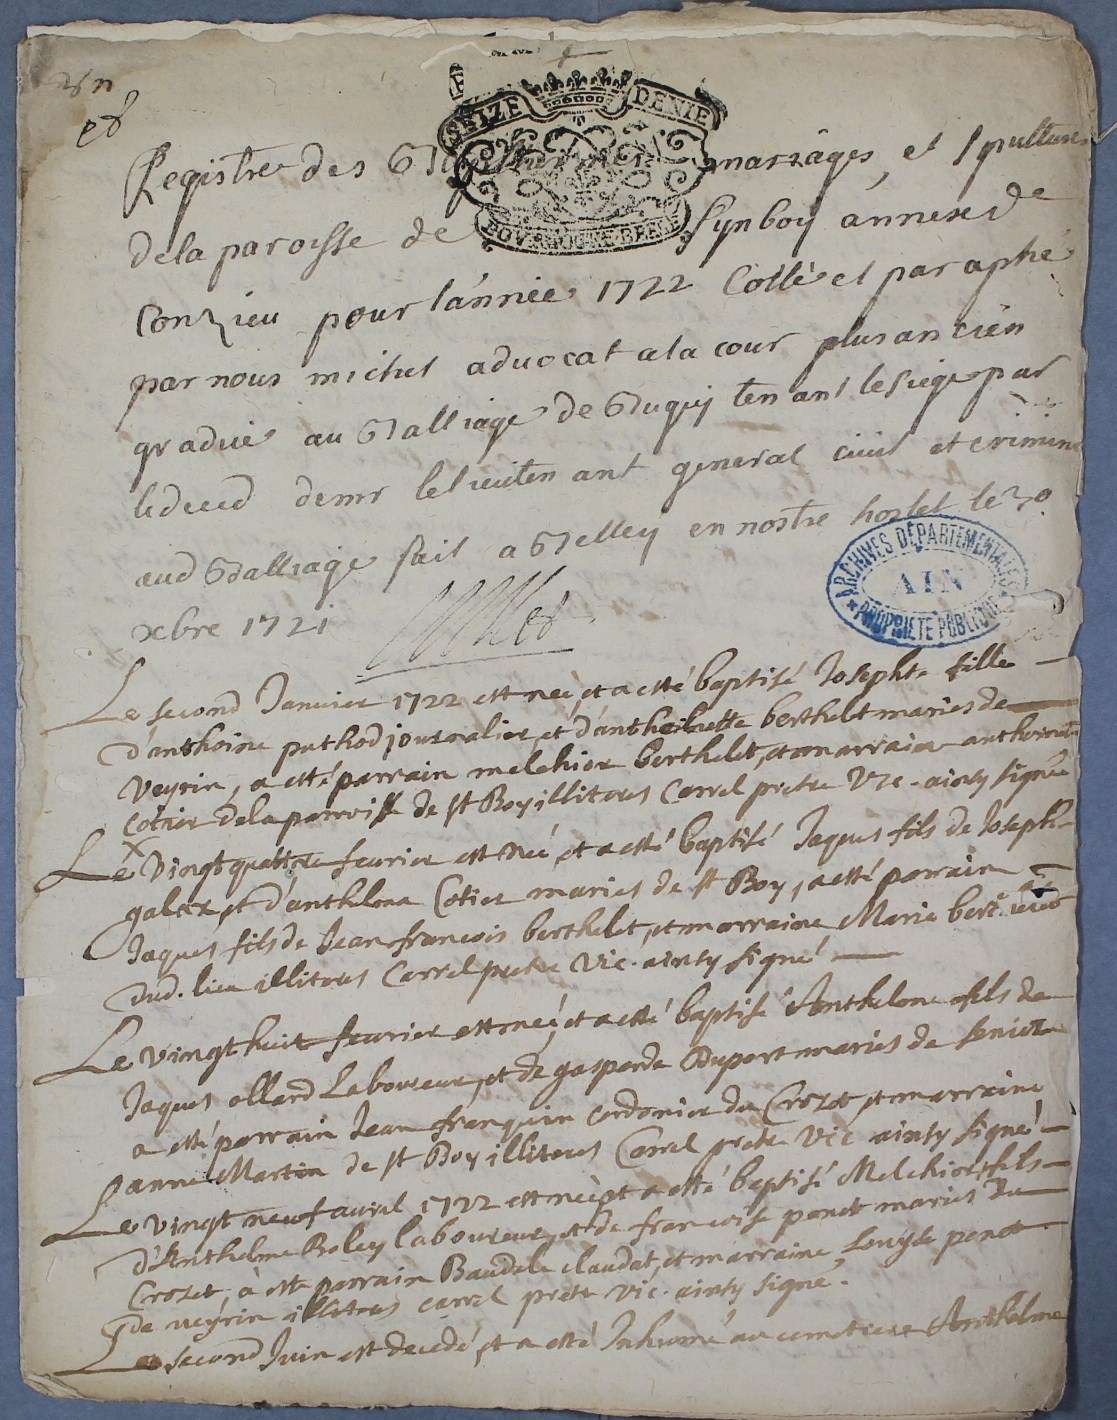 SEIZE DENIE
Registre des mariages, et Spultures
de la paroisse de Synboy annexe de
Conzieu pour l'année 1722 Cotté et paraphé
par nous michel advocat a la cour plus ancien
gradué au Balliage de Bugey tenant le siege par
le deced de mr le lieutenant general civil et crimin
aud Balliage fait a Belley en nostre hostel le 30
xbre 1721
ARCHIVES DÉPARTEMENTALES
AIN
PROPRIÉTÉ PUBLIQUE
Le second Janvier 1722 est neé, et a esté baptisé Josephte fille
d'anthoine puthod journalier, et d'anthelmette berthelet mariés de
Veyrin, a esté parrain melchior berthelet, et marraine
Cotier de la parroisse de st Boy illiteres Carrel pretre Vic. ainsy signé
Le Vingt quattre fevrier est né, et a esté baptisé Jaques fils de Joseph
et d'anthelma Cotier mariés de st Boy, a esté parrain
Jaques fils de Jean francois berthelet, et marraine Marie
dud. lieu illiteres Carrel pretre Vic. ainsy signé
Le vingt huit fevrier est né, et a esté baptisé Anthelme fils de
Jaques allard Laboureur, et de gasparde Duport mariés de
a esté parrain Jean franquin cordonier du Crozet et marraine
anne Martin de st Boy illiteres Carrel pretre Vic ainsy signé
Le vingt neuf avril 1722 est né et a esté baptisé Melchior fils
d'Anthelme Roley laboureur, et de francoise ponet mariés du
Crozet, a esté parrain Baudele claudat, et marraine Louyse ponet
de veyrin illiteres carrel pretre vic. ainsy signé.
Le second Juin est decedé, et a esté Inhumé au cemetiere Anthelme